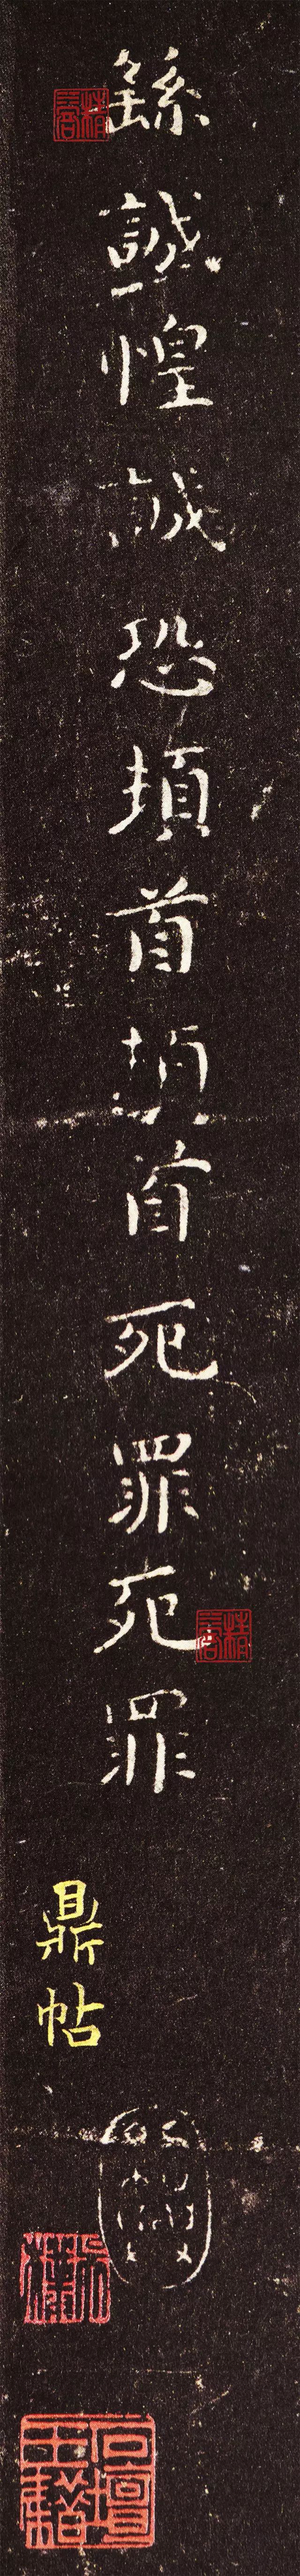 繇誠惶誠恐頓首頓首死罪死罪
鼎帖